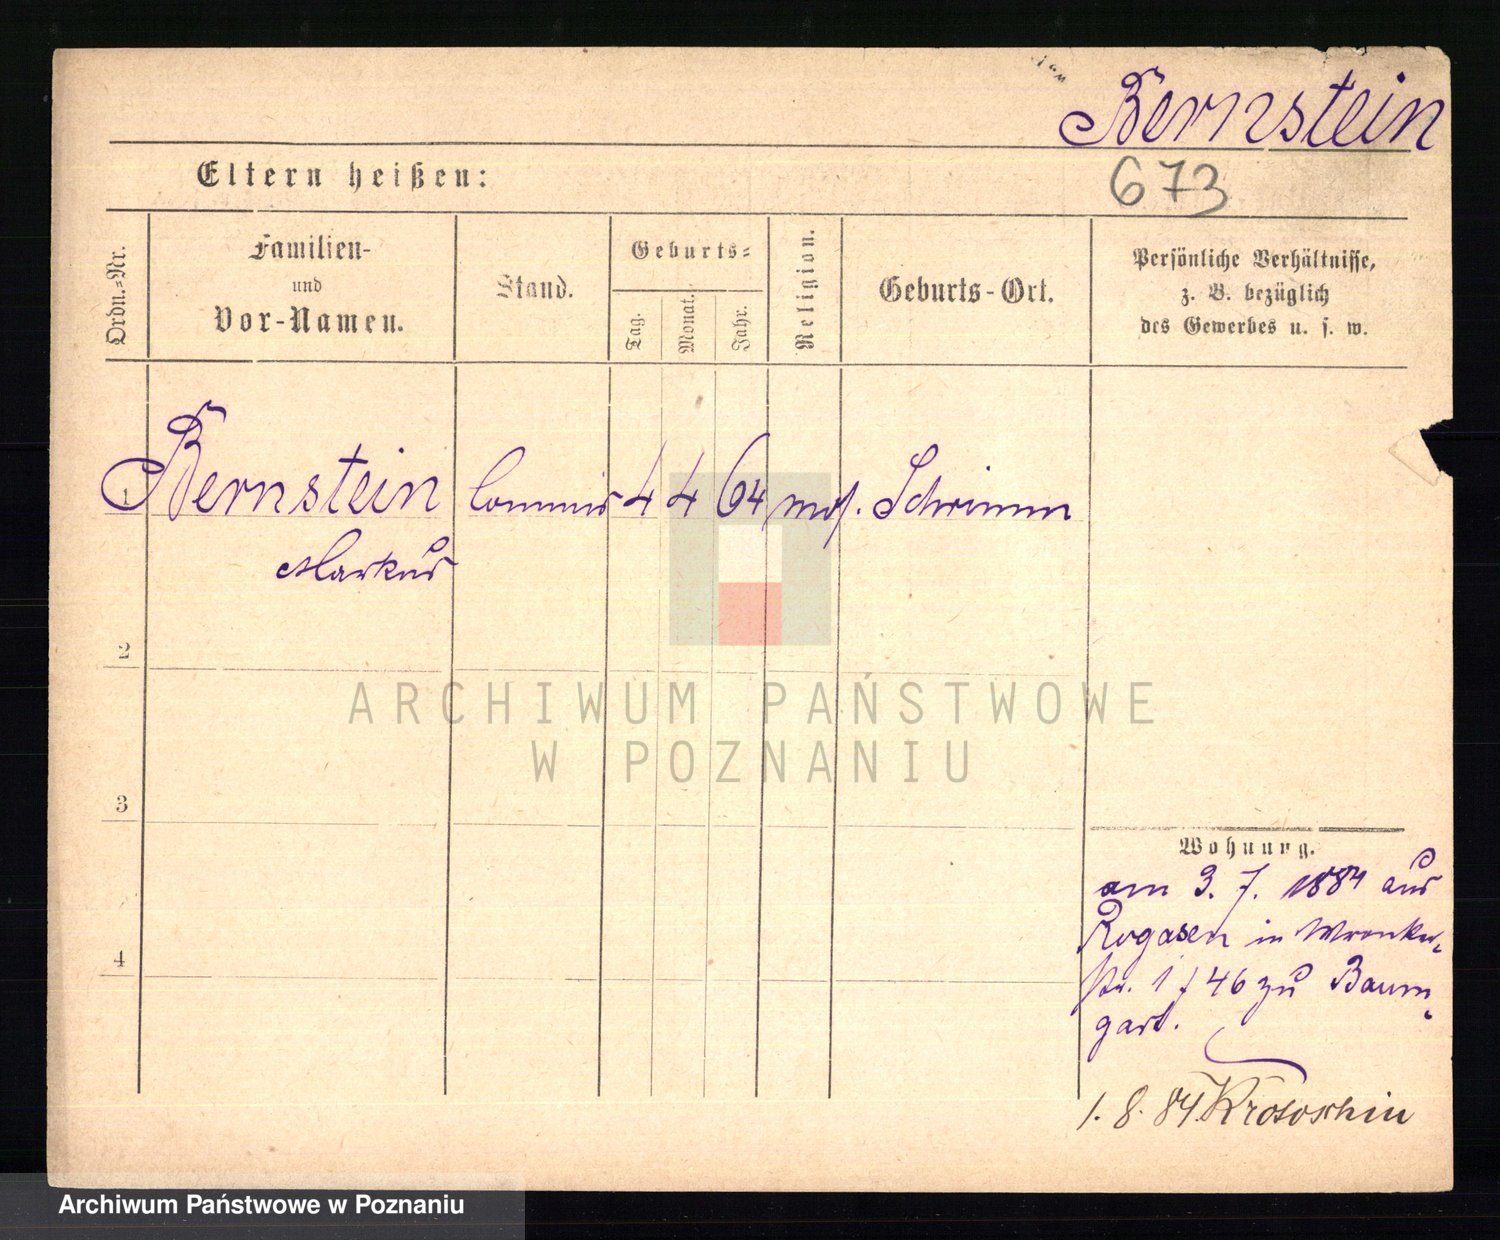 Bernstein
Eltern heißen:
673
Ordn.-Nr.
Familien-
und
Vor-Namen.
Stand.
Geburts-
Tag.
Monat.
Jahr.
Religion.
Geburts-Ort.
Persönliche Verhältnisse,
z. B. bezüglich
des Gewerbes u. s. w.
1 Bernstein Commis 4 4 64 mos. Schrimm
Markus
2
ARCHIWUM PAŃSTWOWE
W POZNANIU
3
Wohnung.
am 3. 7. 1884 aus
Rogasen in Wronker-
str. 1 / 46 zu Baum-
gart.
4
1. 8. 84. Krotoschin
Archiwum Państwowe w Poznaniu